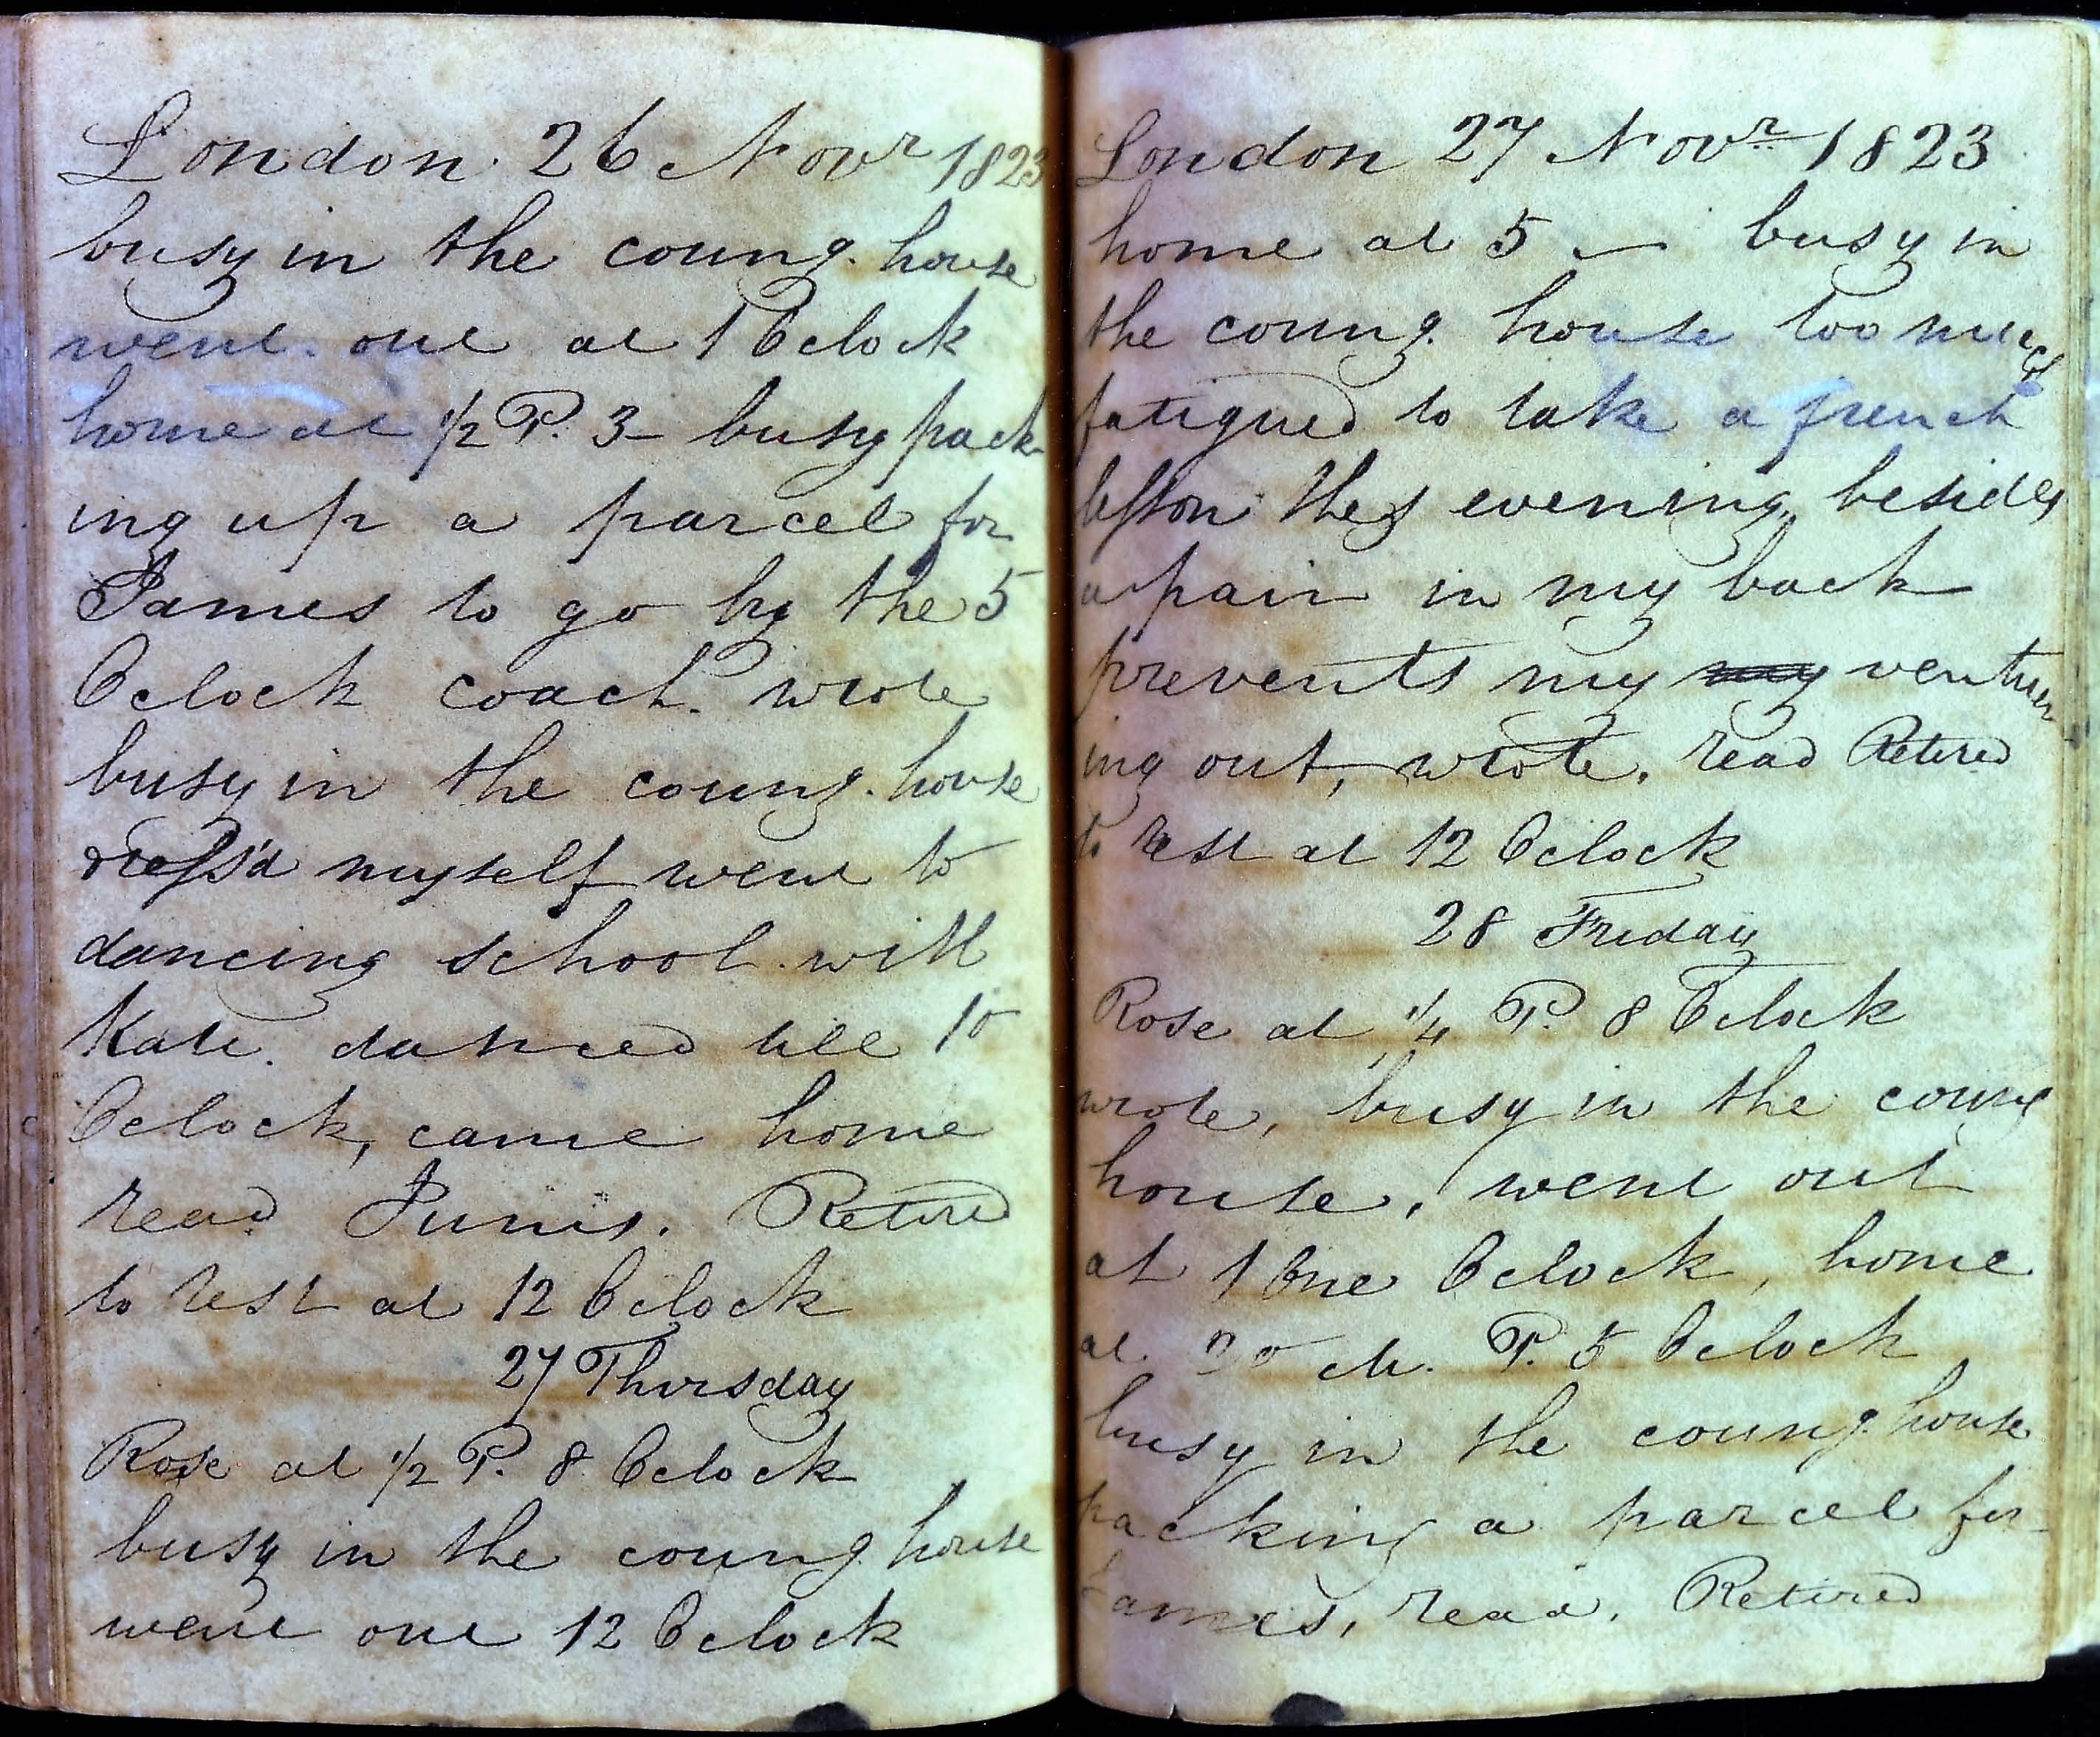 London 26 Novr 1823
busy in the coung. house
went out at 1 Oclock
home at 1/2 P. 3 - busy pack
ing up a parcel for
James to go by the 5
Oclock coach. wrote
busy in the coung. house
dress'd myself went to
dancing school with
Kate. danced till 10
Oclock, came home
read Junis. Retired
to rest at 12 Oclock
27 Thursday
Rose at 1/2 P. 8 Oclock
busy in the coung house
went out 12 Oclock
London 27 Novr 1823
home at 5 - busy in
the coung. house too much
fatigued to take a french
lesson this evening, besides
a pain in my back
prevents my my ventur
ing out, wrote, read Retired
to rest at 12 Oclock
28 Friday
Rose at 1/4 P. 8 Oclock
wrote, busy in the coung
house, went out
at 1 One Oclock, home
at 20 M. P. 5 Oclock
busy in the coung. house
packing a parcel for
James, read. Retired